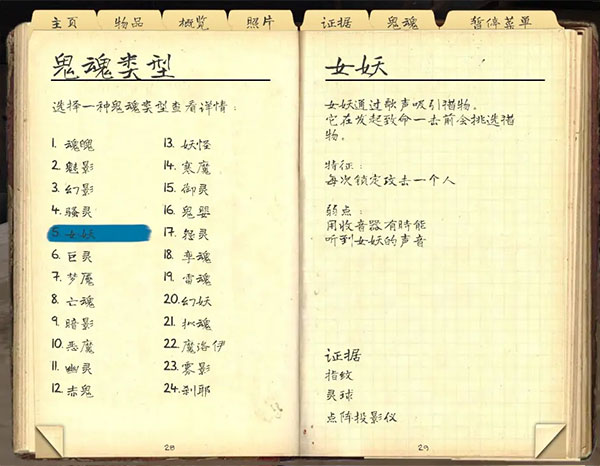 主页 物品 概览 照片 证据 鬼魂 暂停菜单
鬼魂类型
选择一种鬼魂类型查看详情:
1. 魂魄
2. 魅影
3. 幻影
4. 骚灵
5. 女妖
6. 巨灵
7. 梦魇
8. 亡魂
9. 暗影
10. 恶魔
11. 幽灵
12. 赤鬼
13. 妖怪
14. 寒魔
15. 御灵
16. 鬼婴
17. 怨灵
18. 孪魂
19. 雷魂
20. 幻妖
21. 拟魂
22. 魔洛伊
23. 雾影
24. 刹耶
28
女妖
女妖通过歌声吸引猎物。
它在发起致命一击前会挑选猎
物。
特征:
每次锁定攻击一个人
弱点:
用收音器有时能
听到女妖的声音
证据
指纹
灵球
点阵投影仪
29